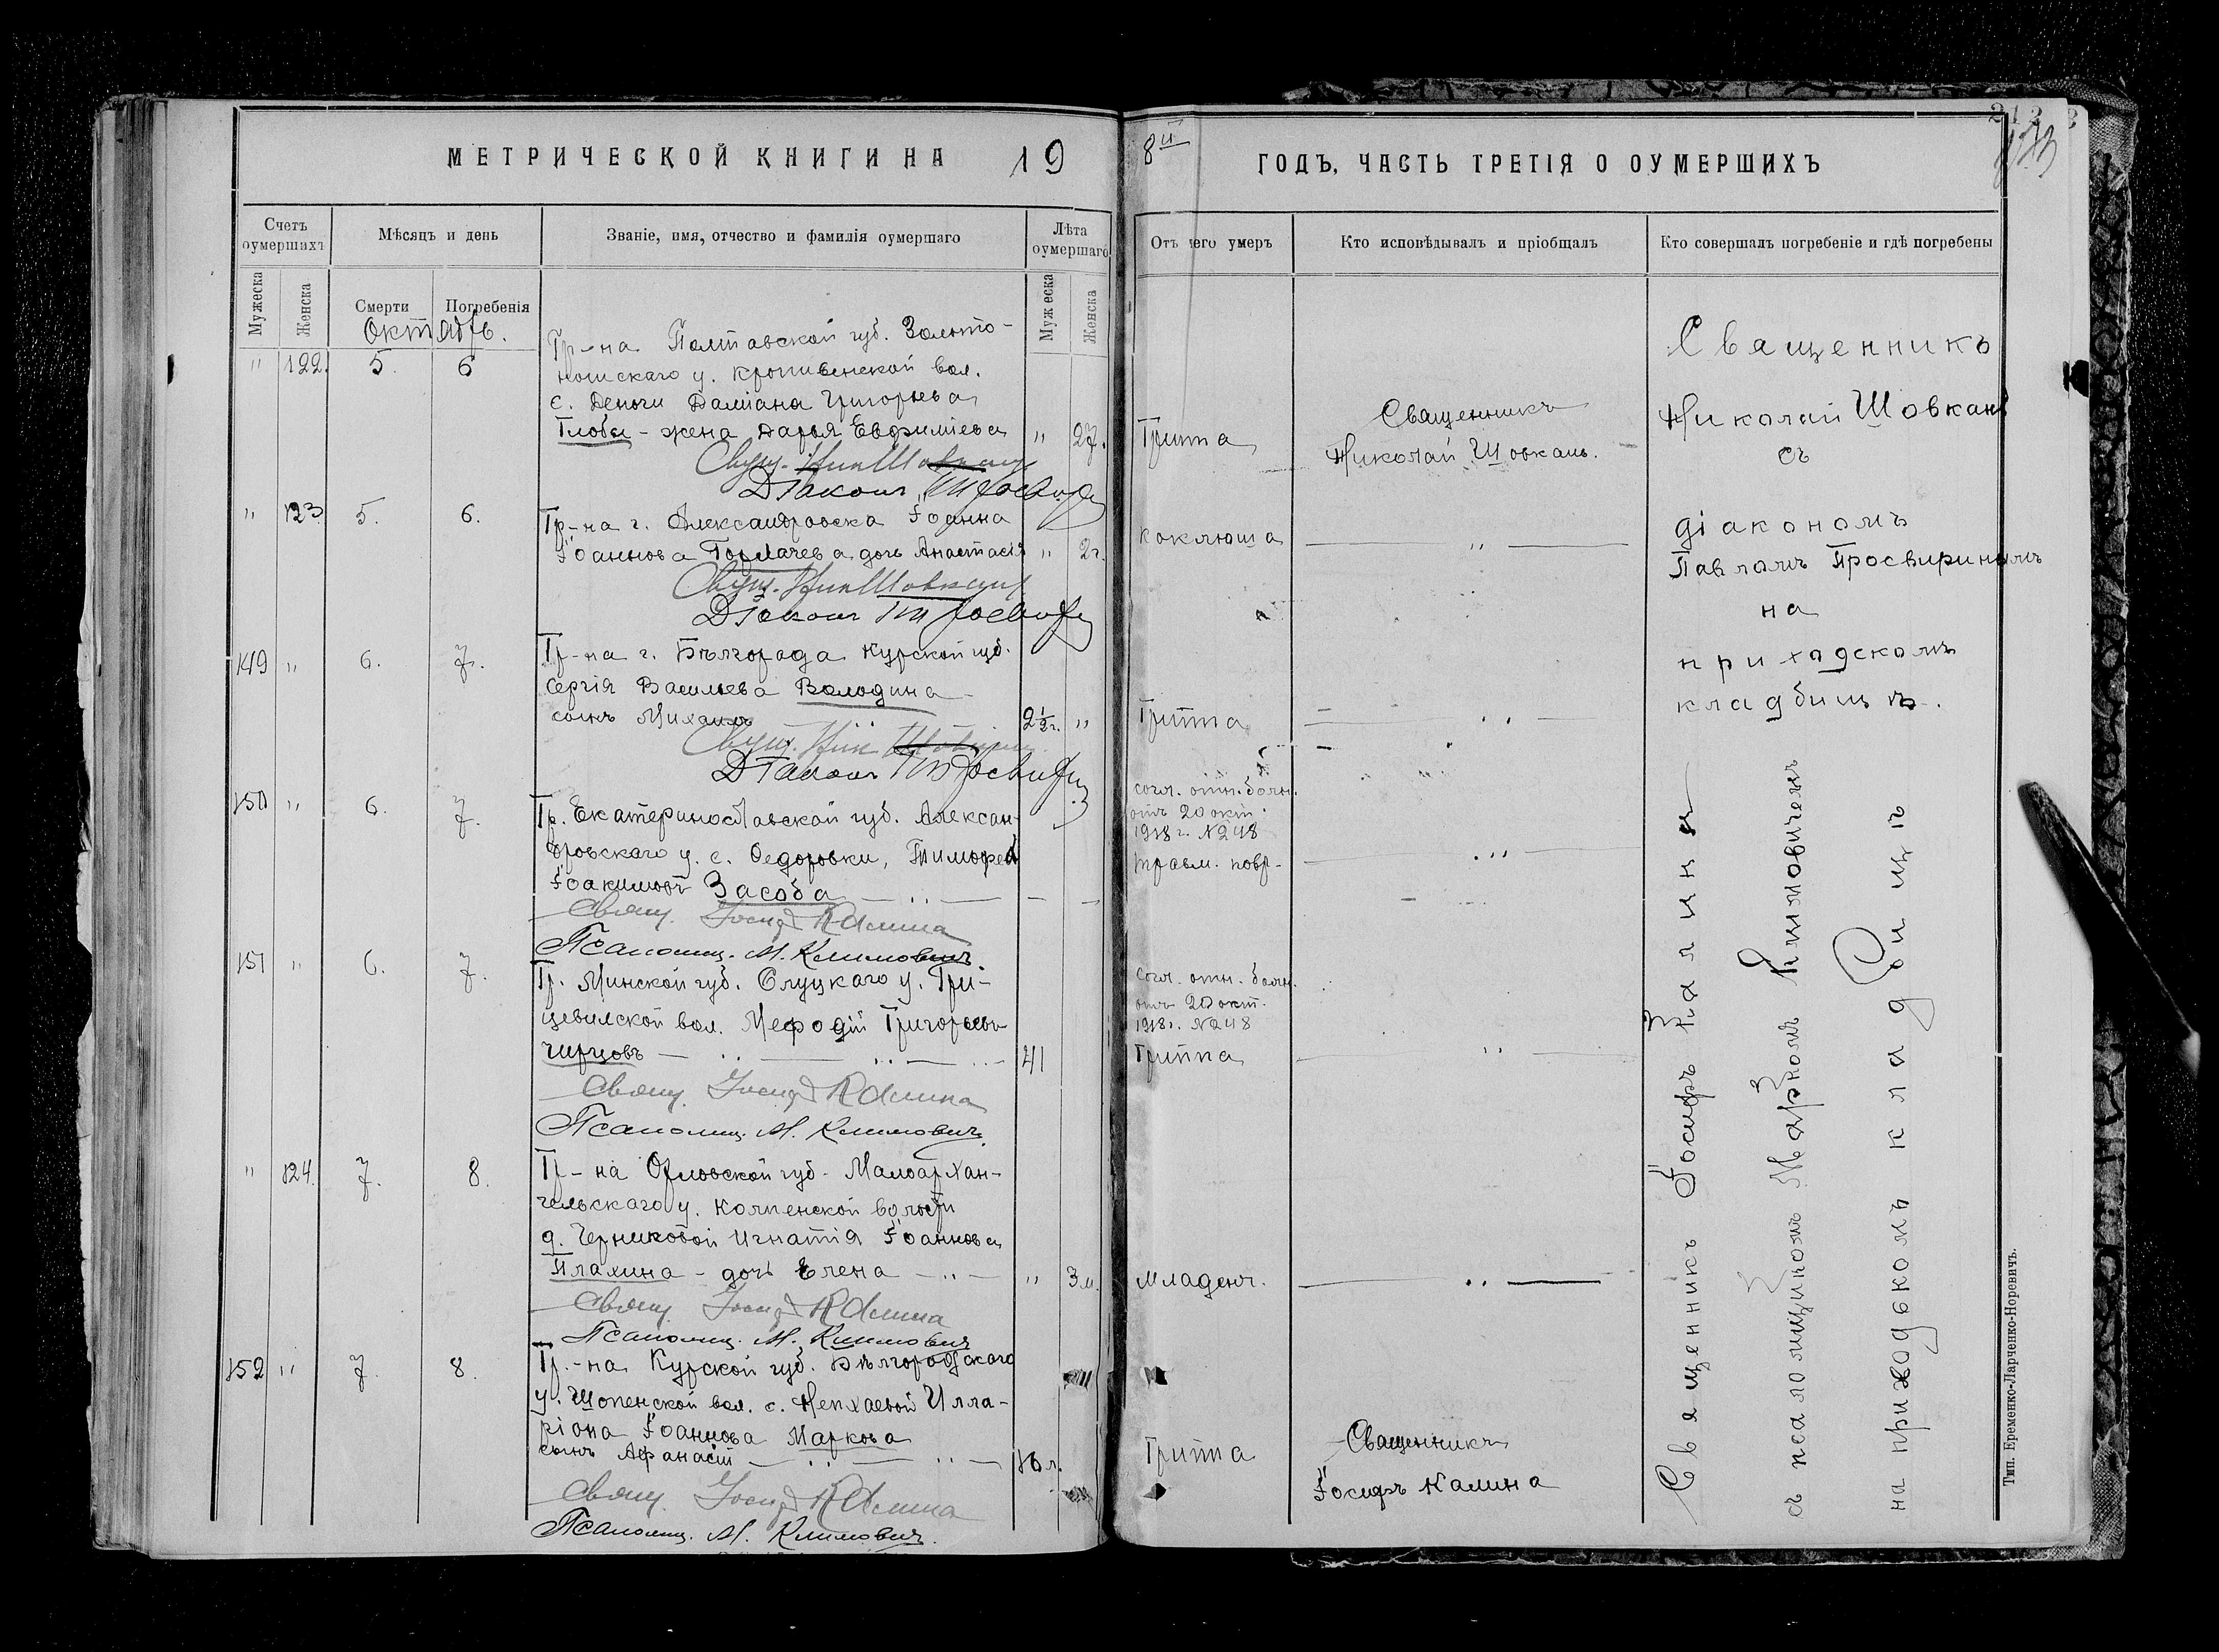 МЕТРИЧЕСКОЙ КНИГИ НА 19
Счетъ оумершихъ
Мѣсяцъ и день
Званіе, имя, отчество и фамилія оумершаго
Лѣта оумершаго
Мужеска
Женска
Смерти
Погребенія
Мужеска
Женска
Октябрь.
" 122. 5. 6
Гр-на Полтавской губ. Золото-
ношскаго у. Кропивенской вол.
с. Деньги Даміана Григорьева
Глобы - жена Дарья Евфиміева " 27.
Свящ. Ник Шовкань
Діаконъ
" 123 5. 6.
Гр-на г. Александровска Іоанна
Іоаннова Горлачева дочь Анастасія " 2 г.
Свящ. Ник Шовкань
Діаконъ
149 " 6. 7.
Гр-на г. Бѣлгорода Курской губ.
Сергія Васильева Володина
сынъ Михаилъ 2½ г. "
Свящ. Ник Шовкань
Діаконъ
150 " 6. 7.
Гр. Екатеринославской губ. Алексан-
дровскаго у. с. Федоровки, Тимофей
Іоакимовъ Засоба
Свящ. Іосифъ Калина
Псаломщ. М. Климовичъ.
151 " 6. 7.
Гр. Минской губ. Слуцкаго у. Гри-
вол. Мефодій Григорьевъ
41
Свящ. Іосифъ Калина
Псаломщ. М. Климовичъ.
" 124. 7. 8.
Гр-на Орловской губ. Малоархан-
гельскаго у. Колпенской волости
д. Черниковой Игнатія Іоаннова
Плахина - дочь Елена - " - " 3 м.
Свящ. Іосифъ Калина
Псаломщ. М. Климовичъ
152 " 7. 8.
Гр.-на Курской губ. Бѣлгородскаго
у. Шопенской вол. с. Непхаевой Илла-
ріона Іоаннова Маркова
сынъ Афанасій 18 л.
Свящ. Іосифъ Калина
Псаломщ. М. Климовичъ.
8й
ГОДЪ, ЧАСТЬ ТРЕТІЯ О ОУМЕРШИХЪ
Отъ чего умеръ
Кто исповѣдывалъ и пріобщалъ
Кто совершалъ погребеніе и гдѣ погребены
Гриппа
Священникъ
Николай Шовкань.
Коклюша
Гриппа
согл. отн. больн.
отъ 20 окт.
1918 г. №248
травм. повр-
согл. отн. больн.
отъ 20 окт.
1918 г. №248
Гриппа
младенч.
Гриппа
Священникъ
Іосифъ Калина
Священникъ
Николай Шовкань
съ
діакономъ
Павломъ Просвиринымъ
на
приходскомъ
кладбищѣ.
Священникъ Іосифъ Калина
съ псаломщикомъ Маркомъ Климовичемъ
на приходскомъ кладбищѣ
Тип. Еременко-Ларченко-Норевичъ.